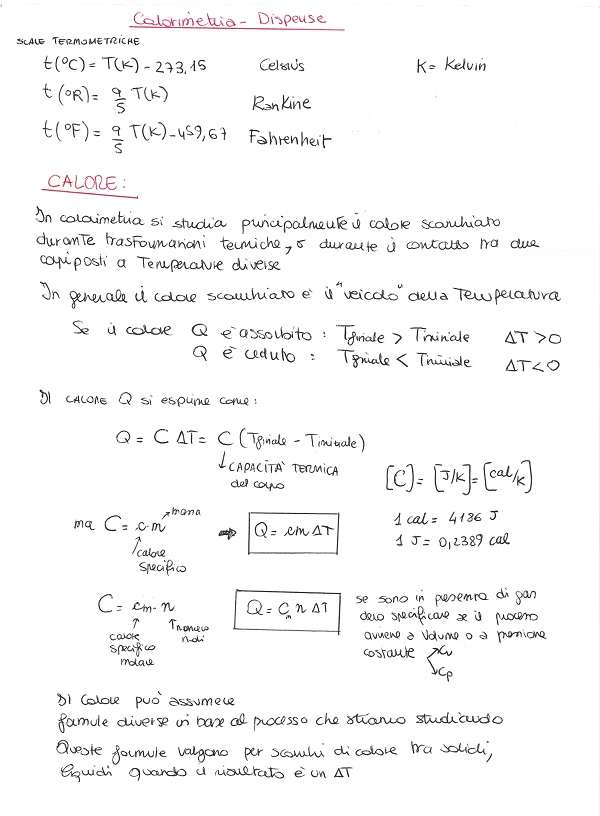 Calorimetria - Dispense
SCALE TERMOMETRICHE
t(°C) = T(K) - 273,15 Celsius K = Kelvin
t(°R) = 9/5 T(K) Rankine
t(°F) = 9/5 T(K) - 459,67 Fahrenheit
CALORE:
In calorimetria si studia principalmente il calore scambiato
durante trasformazioni termiche, o durante il contatto tra due
corpi posti a Temperature diverse
In generale il calore scambiato è il "veicolo" della Temperatura
Se il calore Q è assorbito : Tfinale > Tiniziale ΔT > 0
Q è ceduto : Tfinale < Tiniziale ΔT < 0
Il CALORE Q si esprime come:
Q = C ΔT = C (Tfinale - Tiniziale)
↓ CAPACITÀ TERMICA
del corpo
[C] = [J/K] = [cal/K]
ma C = c·m massa ⇒ Q = cm ΔT
calore
specifico
1 cal = 4186 J
1 J = 0,2389 cal
C = cm · n Q = Cm n ΔT
calore
specifico
molare
numero
moli
se sono in presenza di gas
devo specificare se il processo
avviene a Volume o a pressione
costante Cv
Cp
Il calore può assumere
formule diverse in base al processo che stiamo studiando
Queste formule valgono per scambi di calore tra solidi,
liquidi quando il risultato è un ΔT